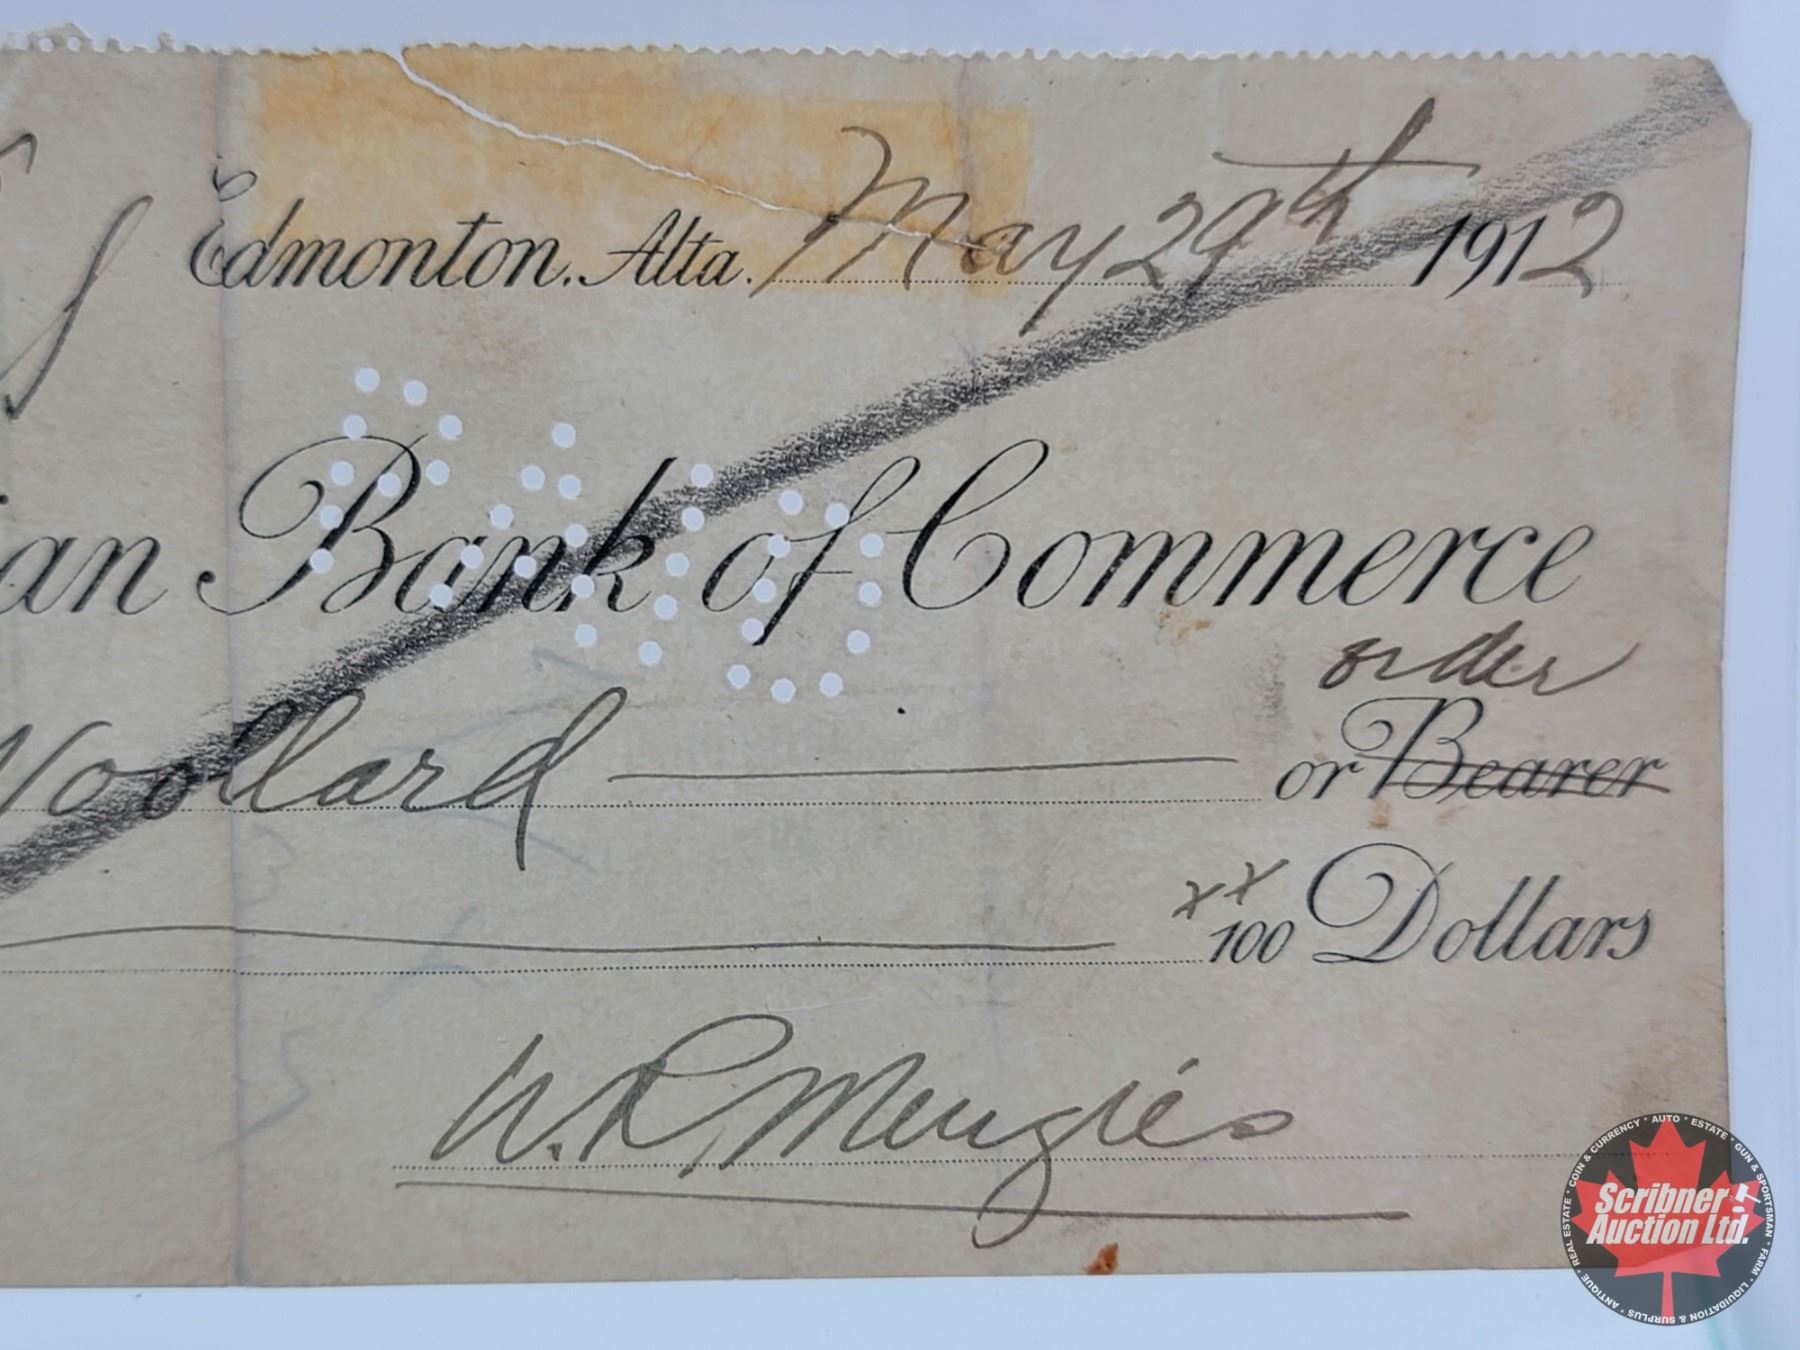 Edmonton, Alta. May 29th 1912
PAID
an Bank of Commerce
order
Woollard or Bearer
xx/100 Dollars
W. R. Menzies
COIN & CURRENCY · AUTO · ESTATE · GUN & SPORTSMAN · FARM · LIQUIDATION & SURPLUS · ANTIQUE · REAL ESTATE ·
Scribner
Auction Ltd.